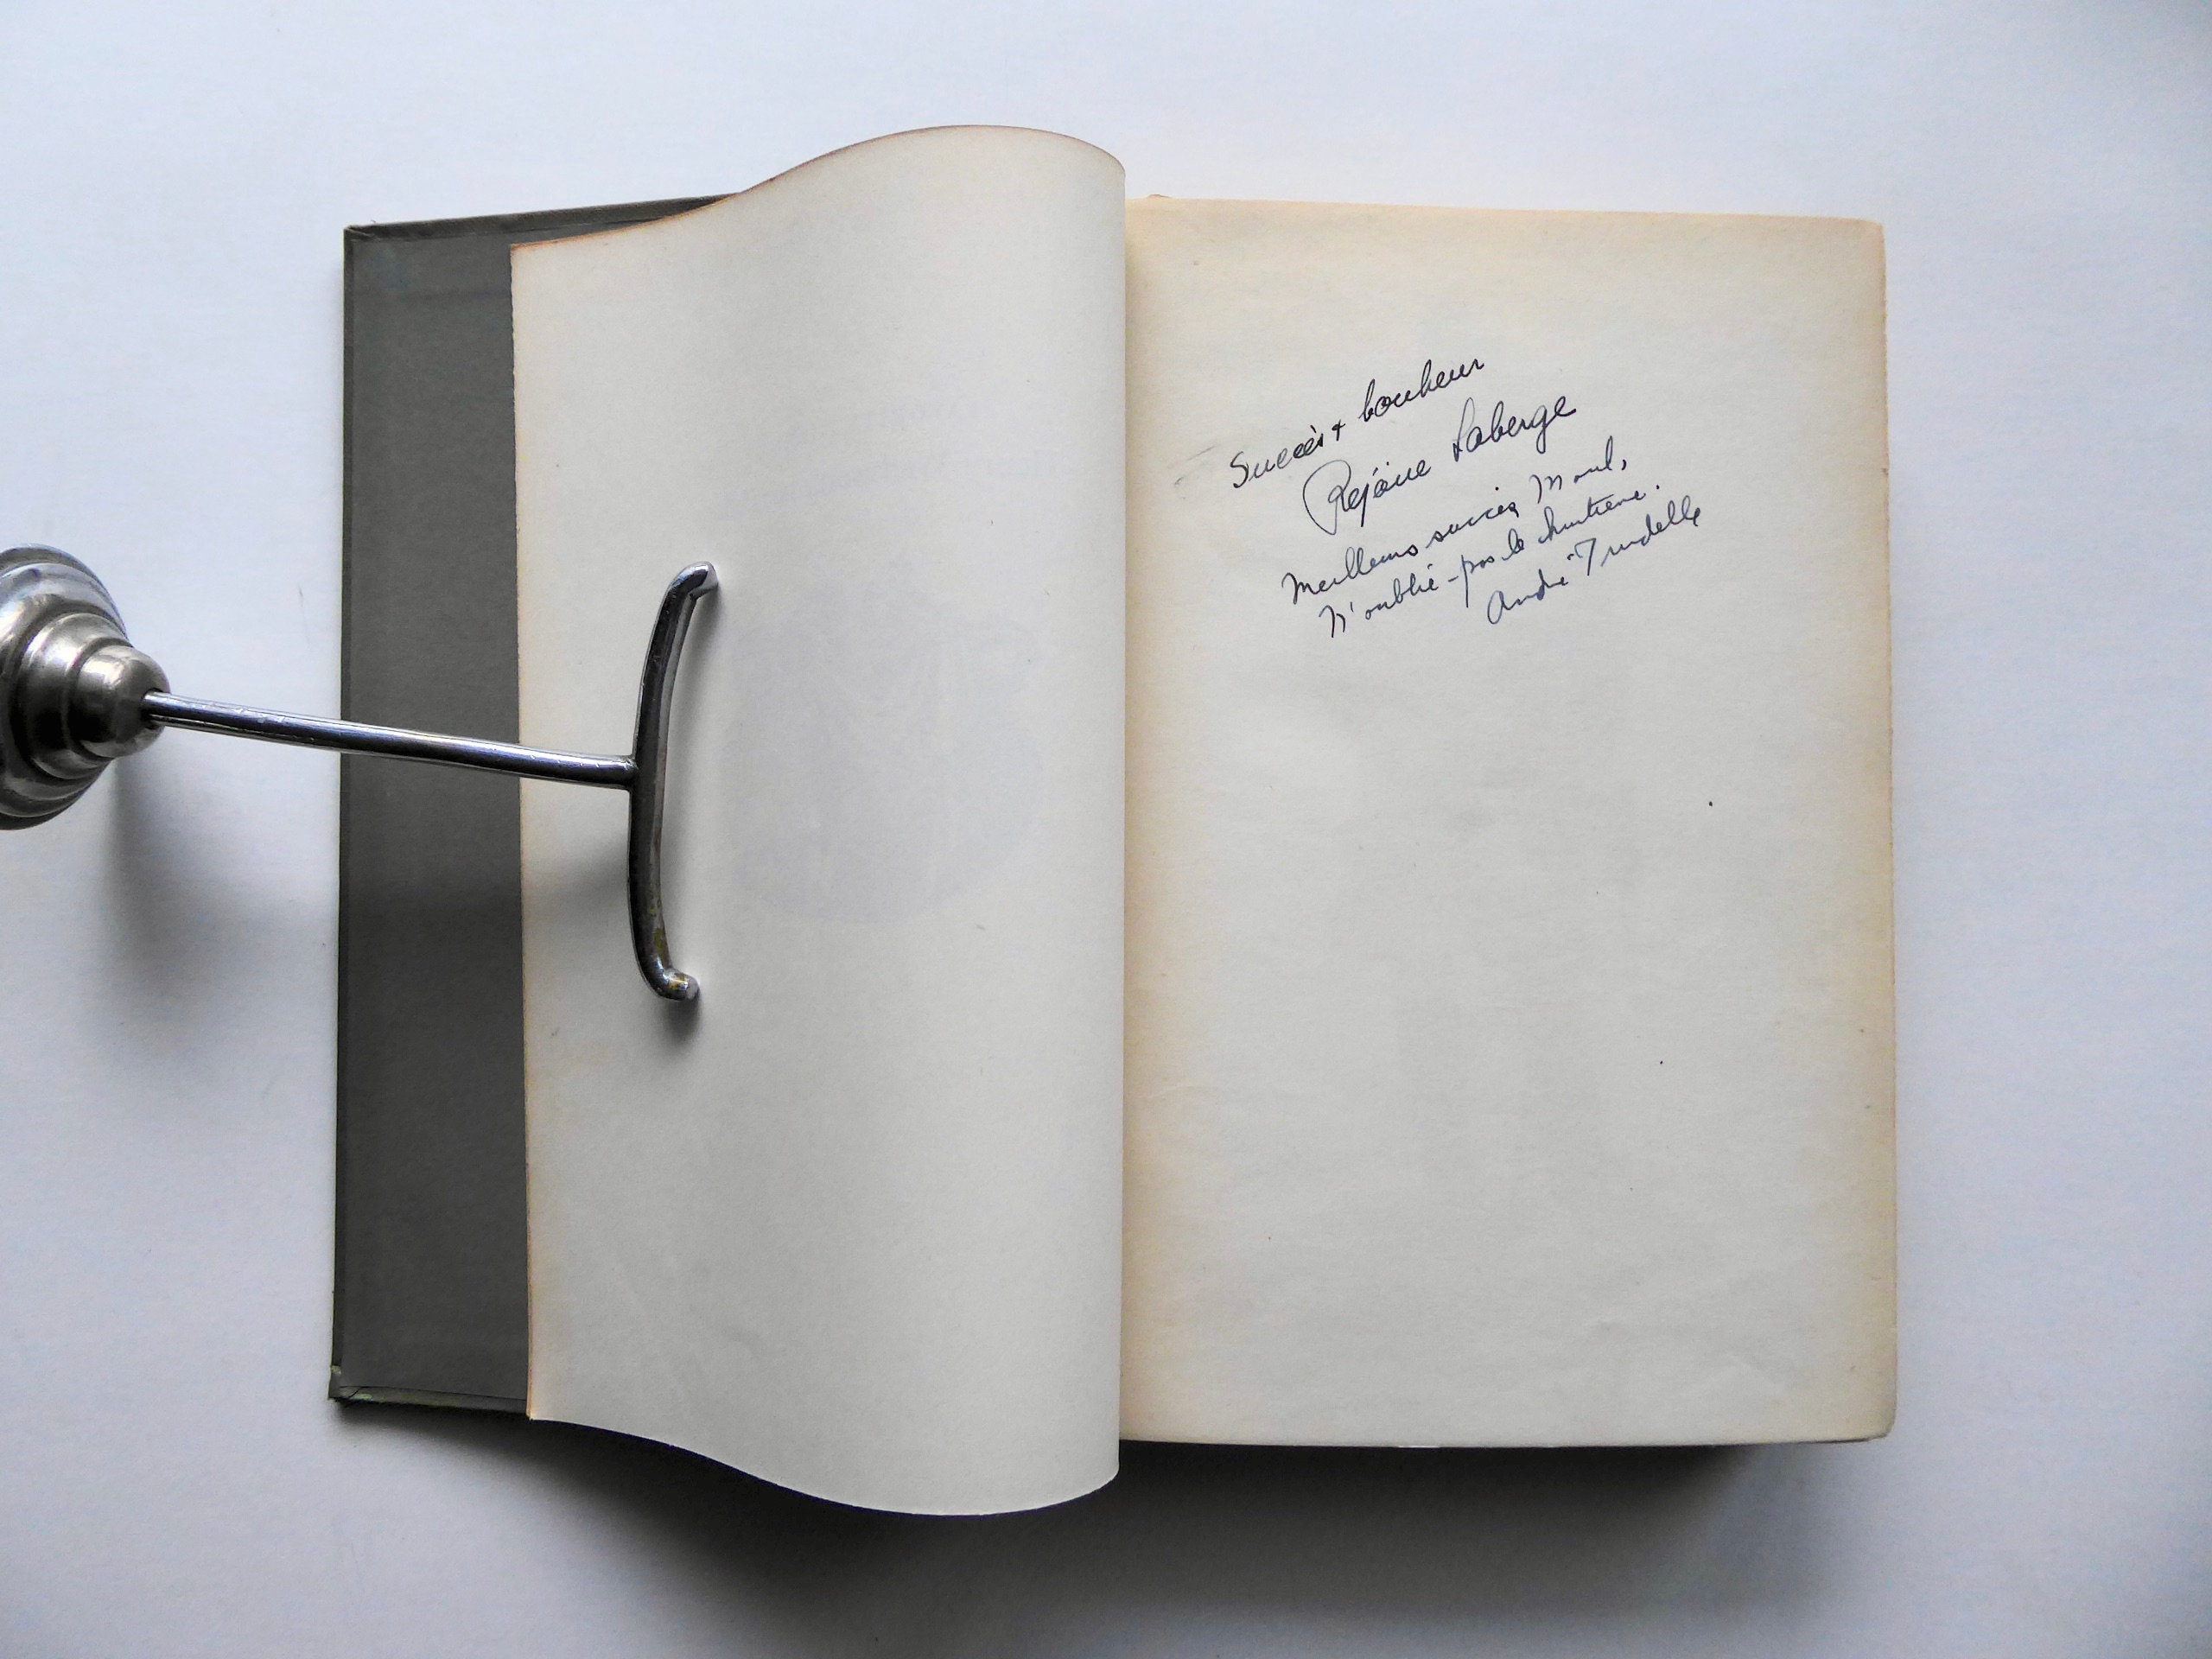 Succès + bonheur
Réjane Laberge
Meilleurs succès
N'oublie-pas la
André Trudelle